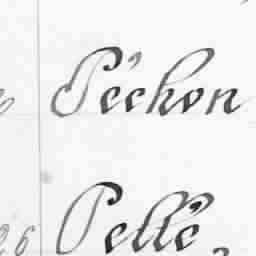 Péchon
26 Pellé